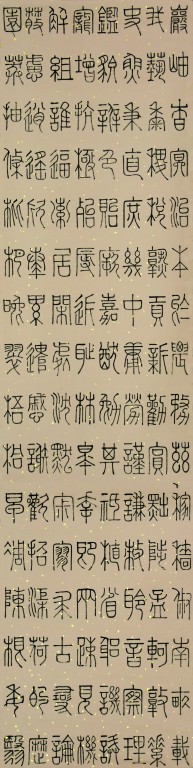 巖岫杳冥治本於農務茲稼穡俶南畝載
我藝黍稷稅熟貢新勸賞黜陟孟軻敦素
史魚秉直庶幾中庸勞謹謙敕聆音察理
鑑貌辨色貽厥嘉猷勉其祗植省躬譏誡
寵增抗極殆辱近恥林皋幸即兩疏見機
解組誰逼索居閒處沈默寂寥求古尋論
散慮逍遙欣奏累遣慼謝歡招渠荷的歷
園莽抽條枇杷晚翠梧桐早凋陳根委翳